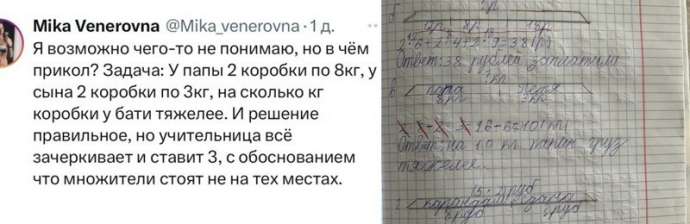 Mika Venerovna @Mika_venerovna · 1 д.
Я возможно чего-то не понимаю, но в чём
прикол? Задача: У папы 2 коробки по 8кг, у
сына 2 коробки по 3кг, на сколько кг
коробки у бати тяжелее. И решение
правильное, но учительница всё
зачеркивает и ставит 3, с обоснованием
что множители стоят не на тех местах.
Ответ: 38 рублей заплатила
папа
16-6=10(кг)
Ответ: на 10 кг папин груз
тяжелее.